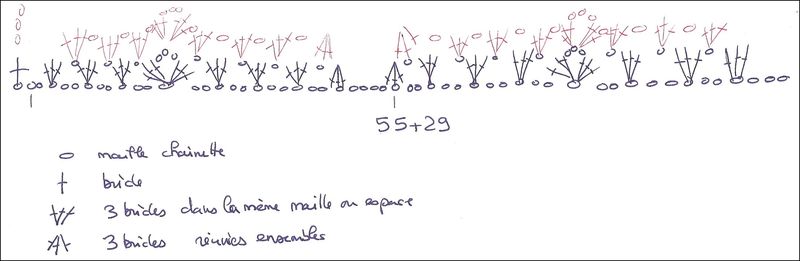 55+29
maille chainette
bride
3 brides dans la même maille ou espace
3 brides réunies ensembles